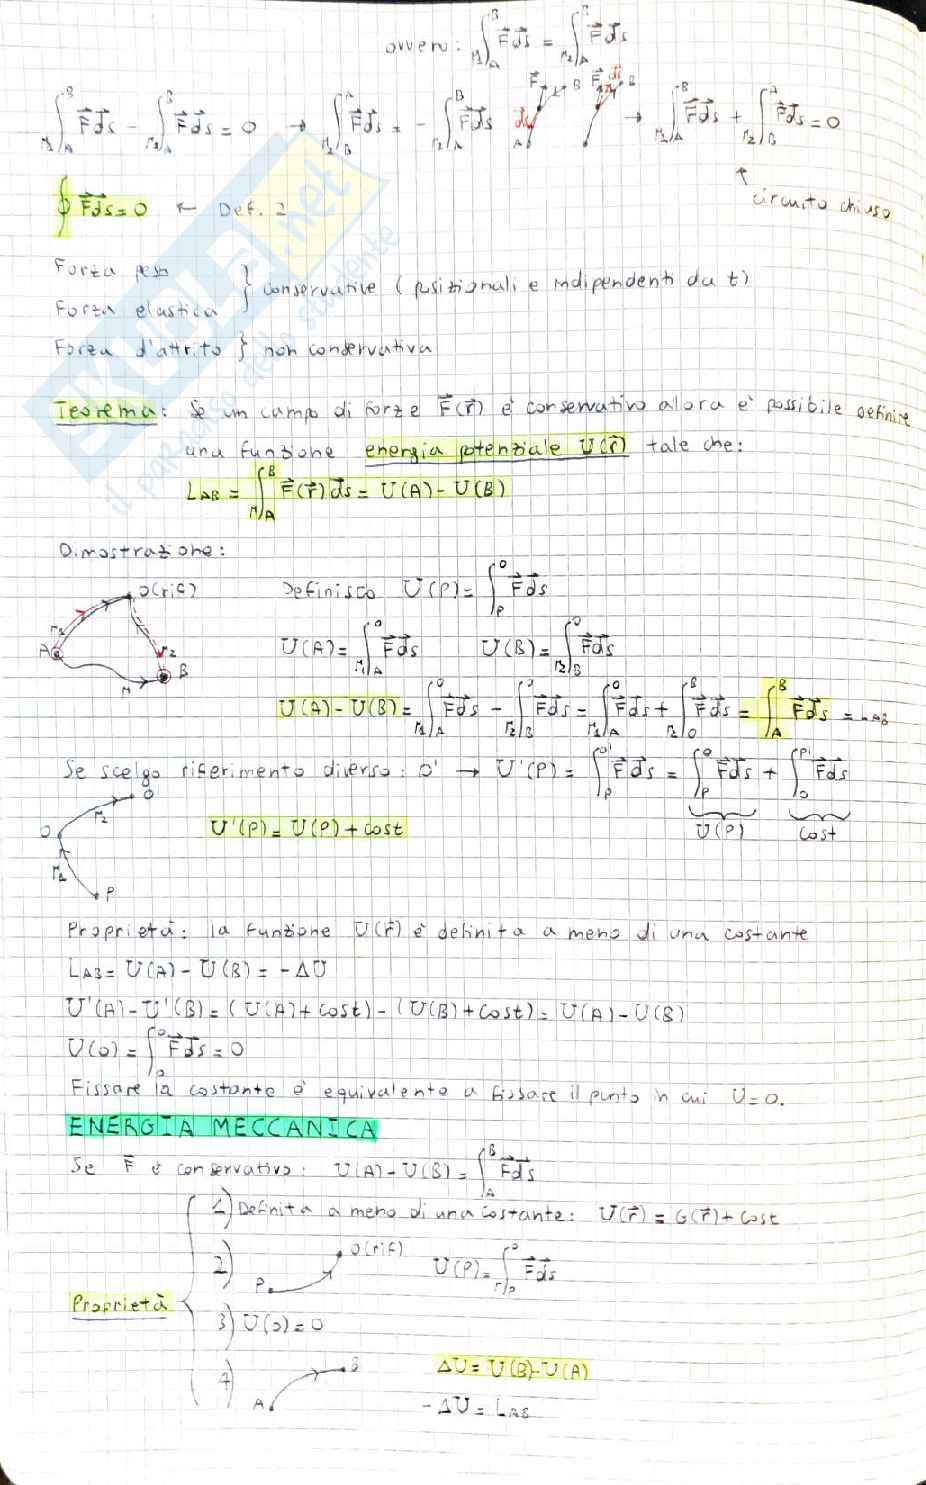 ovvero: ∫_{Γ1 A}^{B} F⃗ds⃗ = ∫_{Γ2 A}^{B} F⃗ds⃗
∫_{Γ1 A}^{B} F⃗ds⃗ - ∫_{Γ2 A}^{B} F⃗ds⃗ = 0 → ∫_{Γ2 B}^{A} F⃗ds⃗ = - ∫_{Γ2 A}^{B} F⃗ds⃗ → ∫_{Γ1 A}^{B} F⃗ds⃗ + ∫_{Γ2 B}^{A} F⃗ds⃗ = 0
F⃗ B ds⃗ A F⃗ ds⃗ B
↑
circuito chiuso
∮ F⃗ds⃗ = 0 ← Def. 2
Forza peso
Forza elastica } conservative (posizionali e indipendenti da t)
Forza d'attrito } non conservativa
Teorema: Se un campo di forze F⃗(r⃗) è conservativo allora è possibile definire
una funzione energia potenziale U(r⃗) tale che:
L_AB = ∫_{Γ A}^{B} F⃗(r⃗)ds⃗ = U(A) - U(B)
Dimostrazione:
O(rif) Definisco U(P) = ∫_P^O F⃗ds⃗
Γ1 A Γ2 B Γ
U(A) = ∫_{Γ1 A}^{O} F⃗ds⃗ U(B) = ∫_{Γ2 B}^{O} F⃗ds⃗
U(A) - U(B) = ∫_{Γ1 A}^{O} F⃗ds⃗ - ∫_{Γ2 B}^{O} F⃗ds⃗ = ∫_{Γ1 A}^{O} F⃗ds⃗ + ∫_{Γ2 O}^{B} F⃗ds⃗ = ∫_A^B F⃗ds⃗ = L_AB
Se scelgo riferimento diverso: O' → U'(P) = ∫_P^{O'} F⃗ds⃗ = ∫_P^O F⃗ds⃗ + ∫_O^{P'} F⃗ds⃗
U(P) cost
O' Γ2 O Γ1 P
U'(P) = U(P) + cost
Proprietà: la funzione U(r⃗) è definita a meno di una costante
L_AB = U(A) - U(B) = -ΔU
U'(A) - U'(B) = (U(A) + cost) - (U(B) + cost) = U(A) - U(B)
U(O) = ∫_O^O F⃗ds⃗ = 0
Fissare la costante è equivalente a fissare il punto in cui U = 0.
ENERGIA MECCANICA
Se F⃗ è conservativa: U(A) - U(B) = ∫_A^B F⃗ds⃗
Proprietà
1) Definita a meno di una costante: U(r⃗) = G(r⃗) + cost
2) P O(rif) U(P) = ∫_{Γ P}^{O} F⃗ds⃗
3) U(O) = 0
4) A B ΔU = U(B) - U(A)
-ΔU = L_AB
SKUOLA.net
il paradiso dello studente